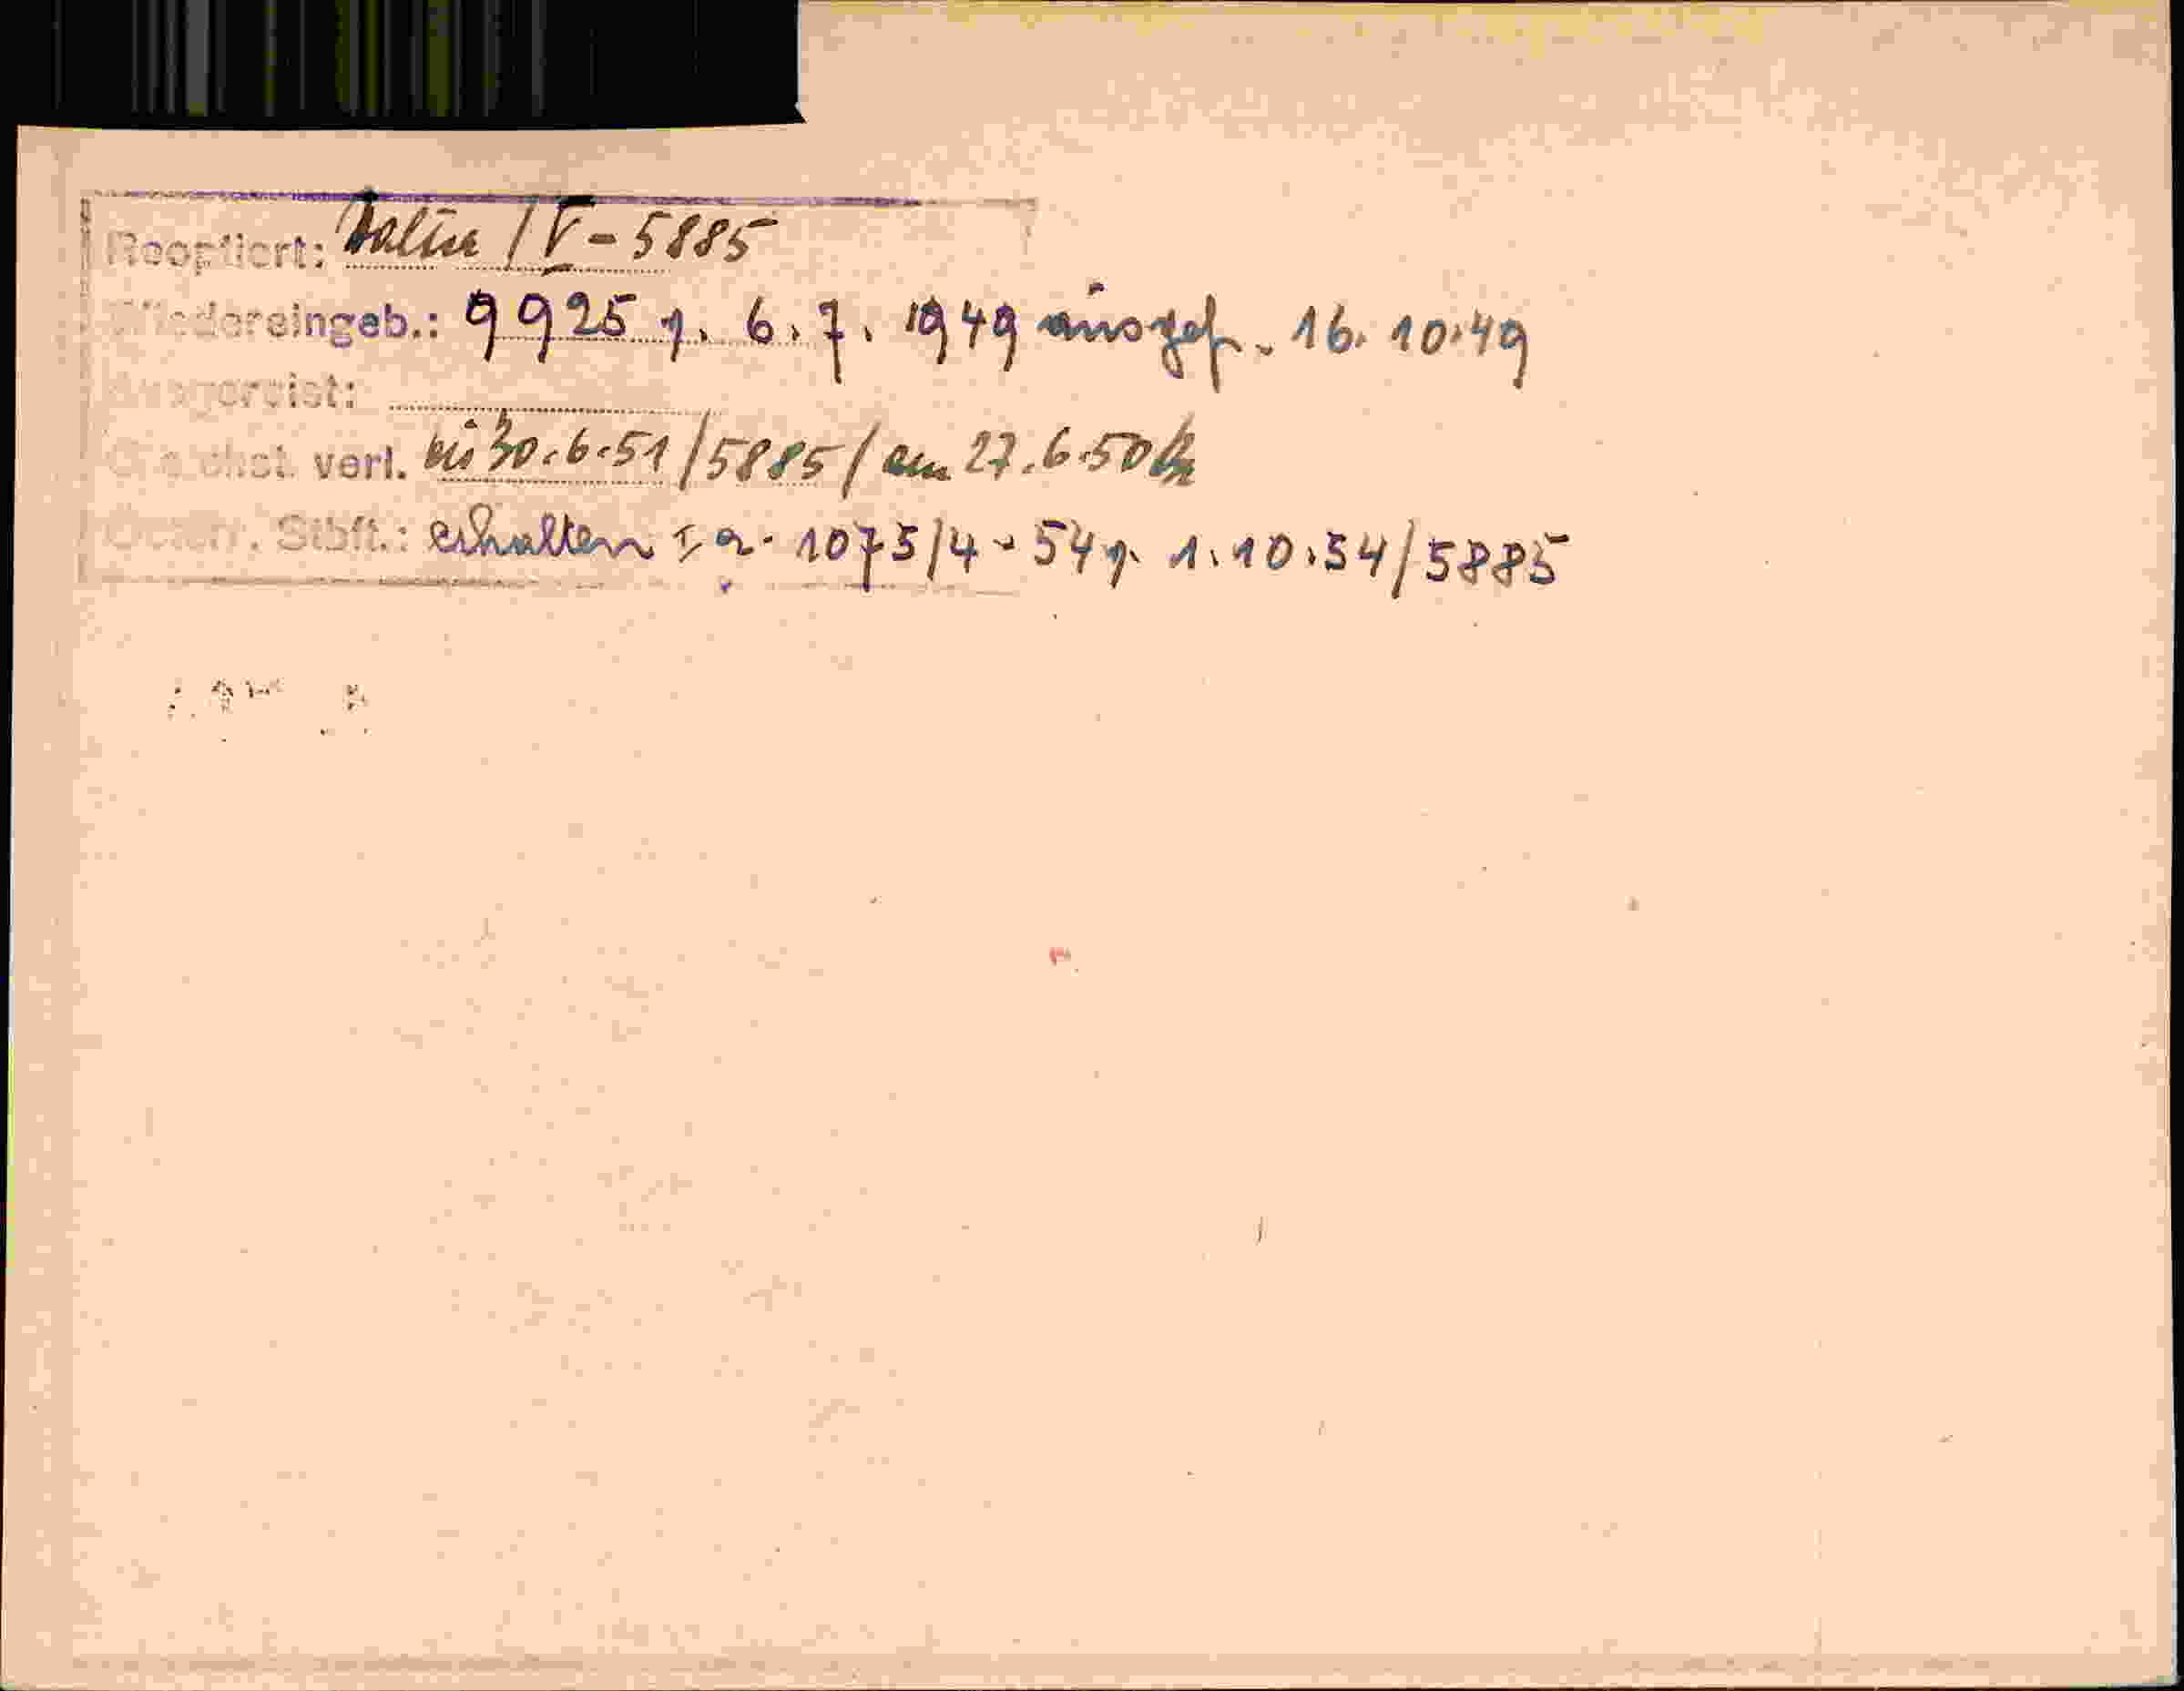 Reoptiert: Italien / V - 5885
Wiedereingeb.: 9925 v. 6.7.1949 ausgef. 16.10.49
Ausgereist:
Gleichst. verl. bis 30.6.51 / 5885 / am 27.6.50
Österr. Stbft.: erhalten I a - 1075/4 - 54 v. 1.10.54/5885